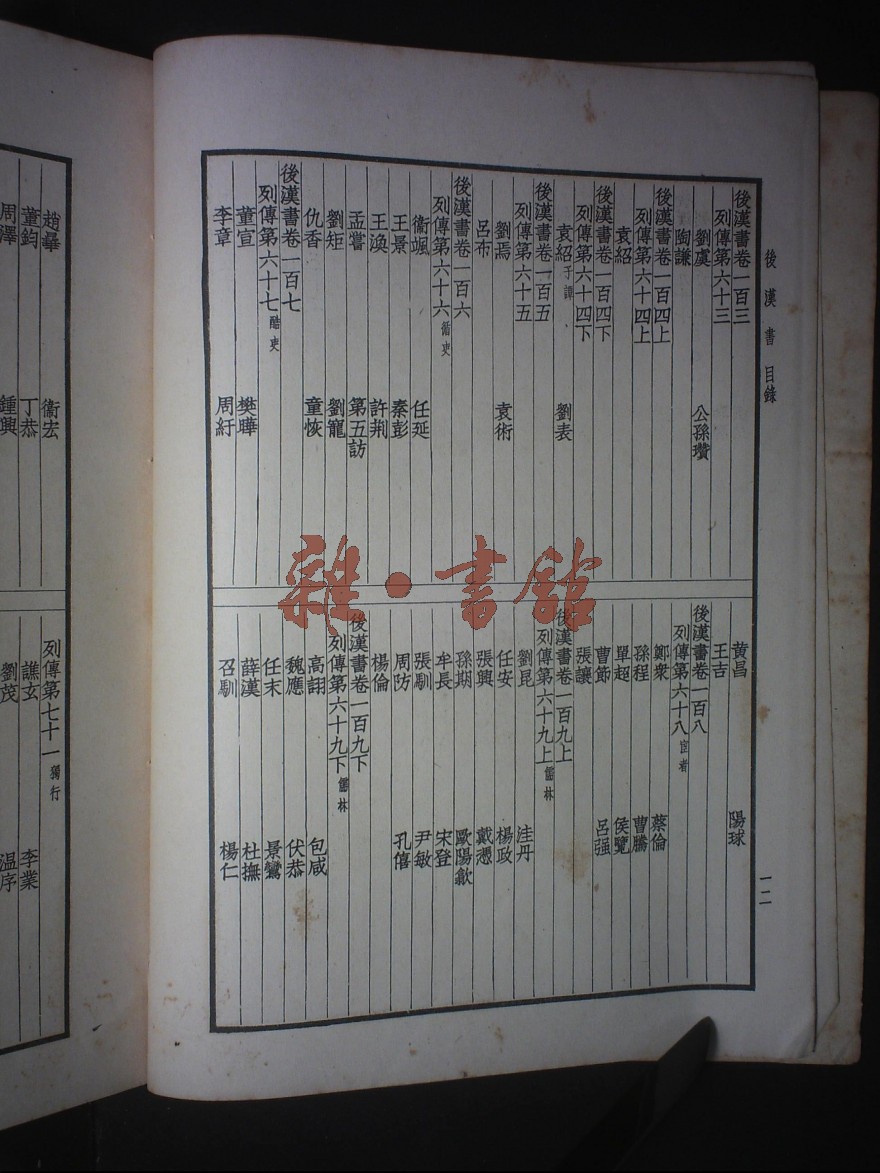 後漢書目錄
一二
後漢書卷一百三
列傳第六十三
劉虞 公孫瓚
陶謙
後漢書卷一百四上
列傳第六十四上
袁紹
後漢書卷一百四下
列傳第六十四下
袁紹子譚 劉表
後漢書卷一百五
列傳第六十五
劉焉 袁術
呂布
後漢書卷一百六
列傳第六十六循吏
衞颯 任延
王景 秦彭
王渙 許荆
孟嘗 第五訪
劉矩 劉寵
仇香 童恢
後漢書卷一百七
列傳第六十七酷吏
董宣 樊曄
李章 周紆
黄昌 陽球
王吉
後漢書卷一百八
列傳第六十八宦者
鄭衆 蔡倫
孫程 曹騰
單超 侯覽
曹節 呂强
張讓
後漢書卷一百九上
列傳第六十九上儒林
劉昆 洼丹
任安 楊政
張興 戴憑
孫期 歐陽歙
牟長 宋登
張馴 尹敏
周防 孔僖
楊倫
後漢書卷一百九下
列傳第六十九下儒林
高詡 包咸
魏應 伏恭
任末 景鸞
薛漢 杜撫
召馴 楊仁
趙曅 衞宏
董鈞 丁恭
周澤 鍾興
列傳第七十一獨行
譙玄 李業
劉茂 温序
雜·書館